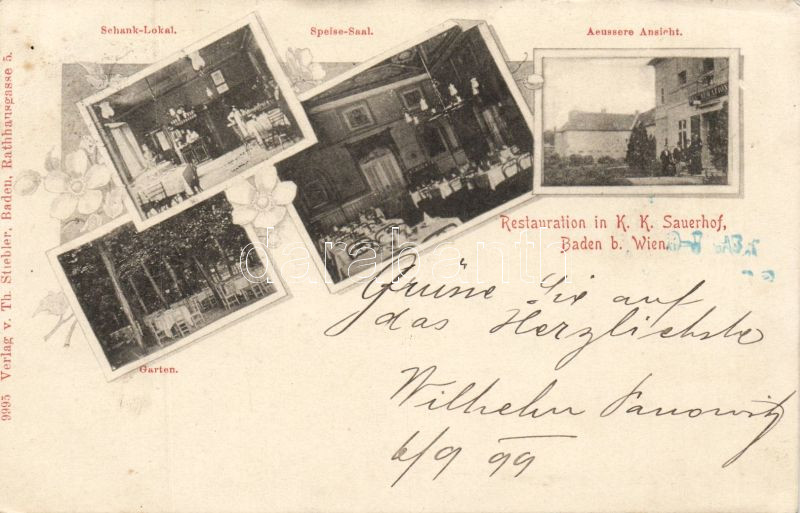 Schank-Lokal.
Speise-Saal.
Aeussere Ansicht.
Restauration in K. K. Sauerhof,
Baden b. Wien.
Garten.
9995 Verlag v. Th. Stiebler, Baden, Rathhausgasse 5.
darabanth
Grüne Sie auf
das Herzlichste
Wilhelm Panowitz
6/9 99